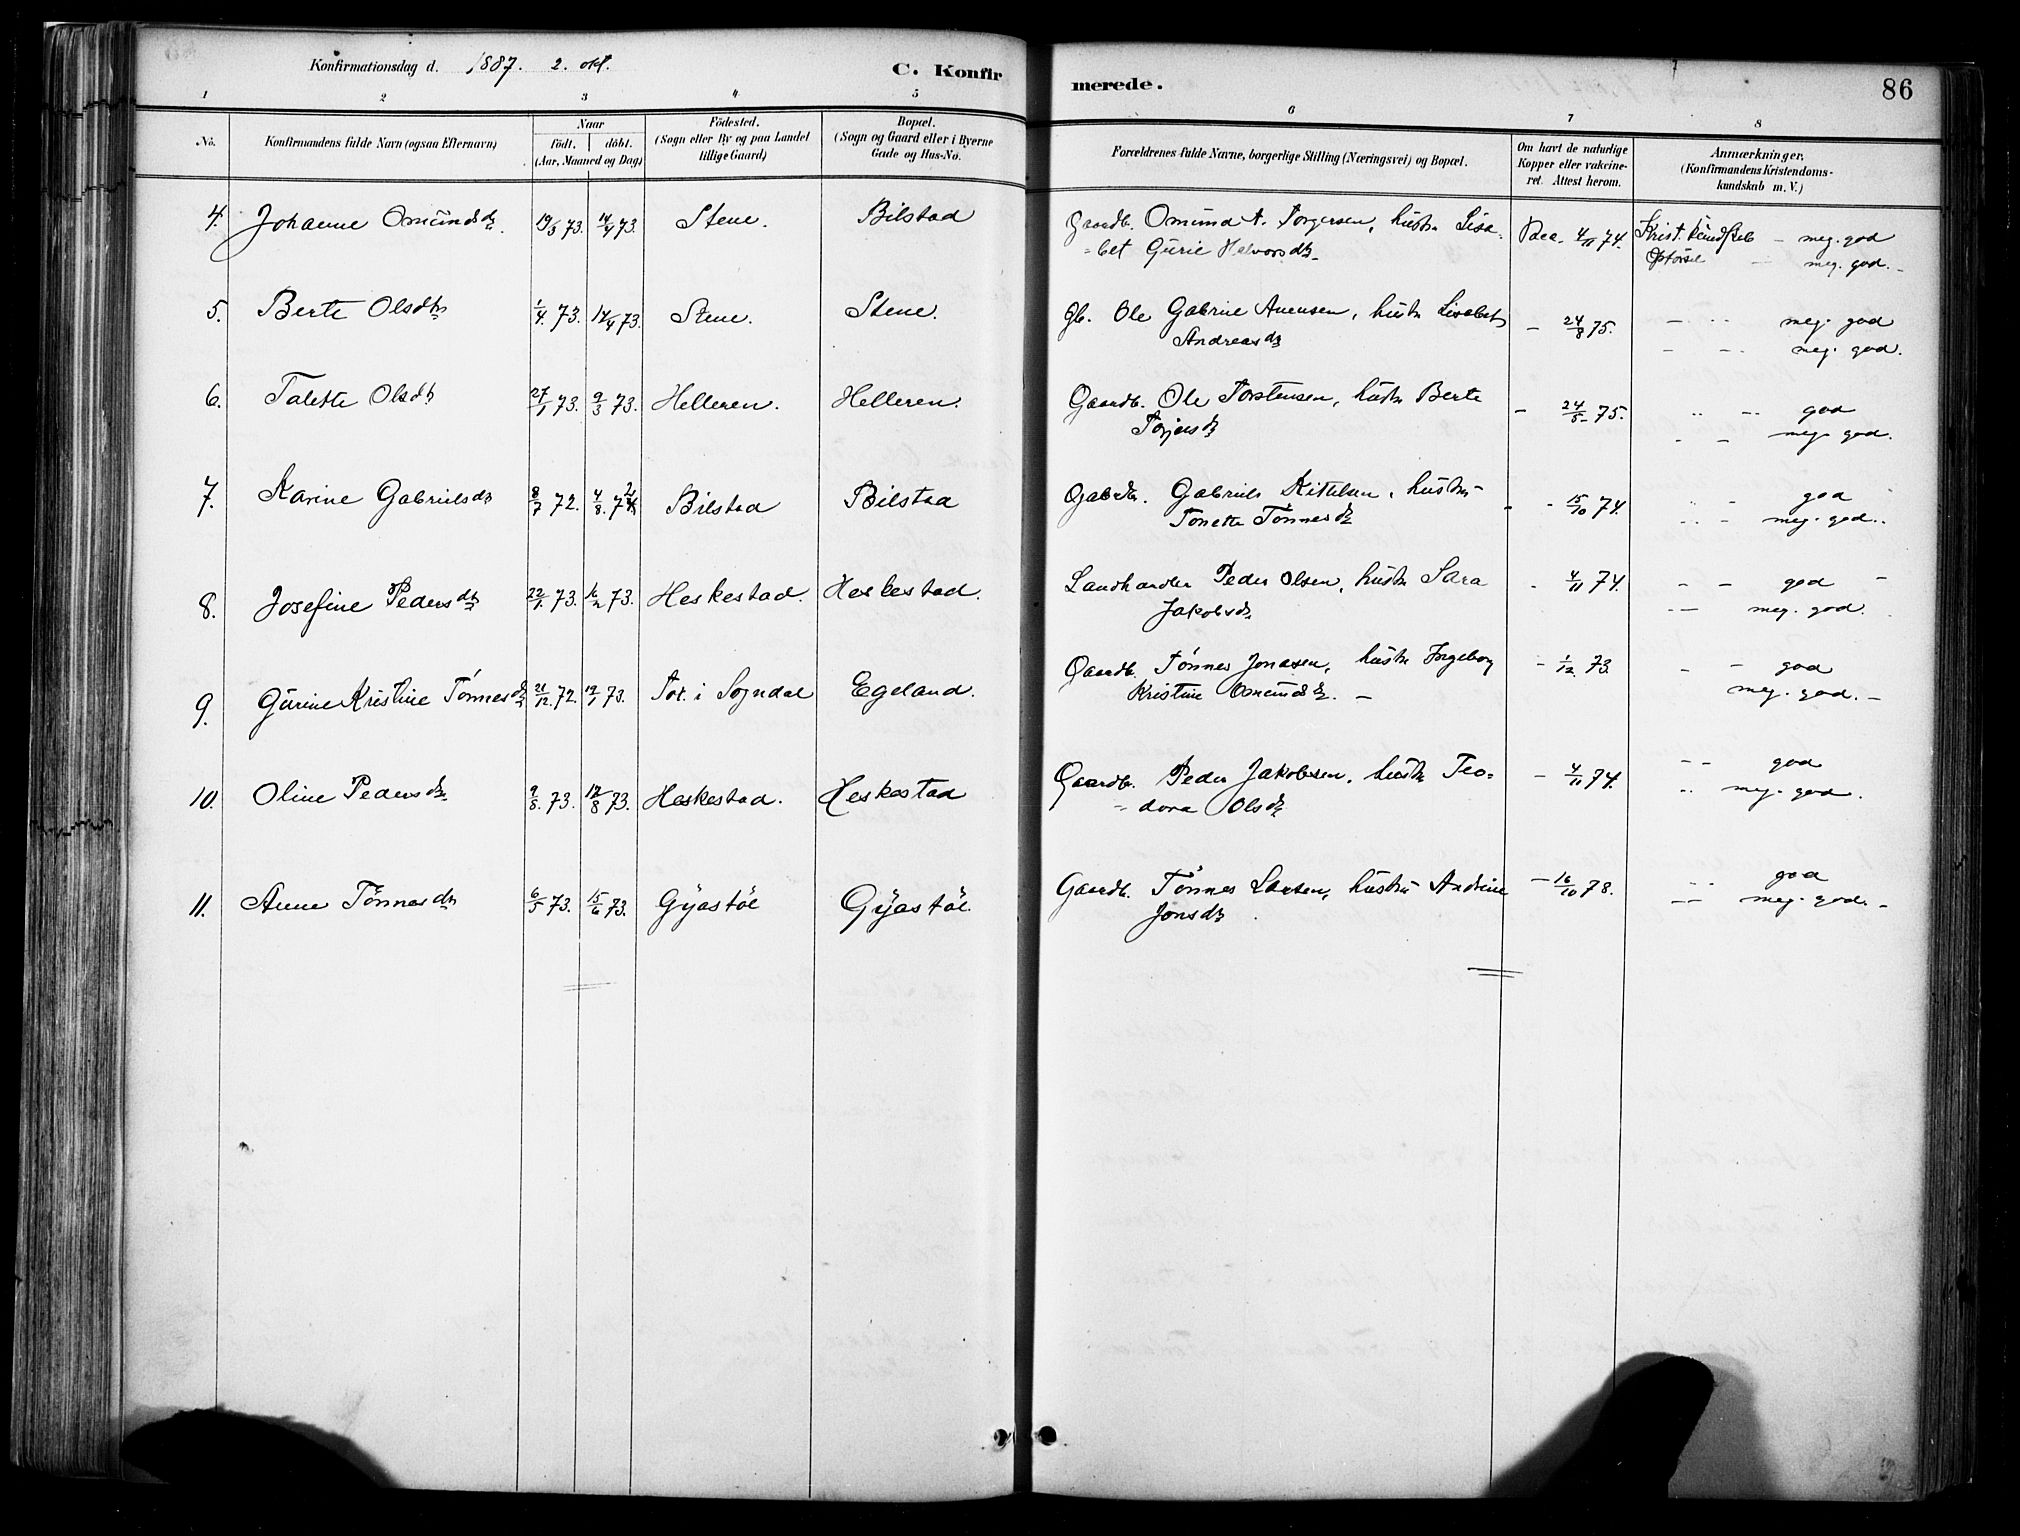 Konfirmationsdag d. 1887. 2. okt.
C. Konfirmerede.
86
1 2 3 4 5 6 7 8
No.
Konfirmandens fulde Navn (ogsaa Efternavn)
Naar
födt. döbt.
(Aar, Maaned og Dag)
Födested.
(Sogn eller By og paa Landet
tillige Gaard)
Bopæl.
(Sogn og Gaard eller i Byerne
Gade og Hus-No.
Forældrenes fulde Navne, borgerlige Stilling (Næringsvei) og Bopæl.
Om havt de naturlige
Kopper eller vakcine-
ret. Attest herom.
Anmærkninger,
(Konfirmandens Kristendoms-
kundskab m. V.)
4. Johanne Omundsdr. 19/3 73. 14/4 73. Stene. Bilstad Gaardb. Omund A. Torgersen, hustru Lisa- Vac. 4/11 74. Krist. kundskab - meg. god
-bet Gurie Halvorsdr. Opførsel - meg. god.
5. Berte Olsdtr 1/4 73. 14/4 73. Stene. Stene. Gb. Ole Gabriel Anensen, hustr Lisabet - 24/8 75. - - meg. god
Andreasdr - - meg. god.
6. Talette Olsdtr 27/1 73. 9/3 73. Helleren. Helleren. Gaardb. Ole Torstensen, hustr Berte - 24/5 75. - - god
Torjusdr - - meg. god.
7. Karine Gabrielsdr 8/7 72. 4/8 72 Bilstad Bilstad Gabriels Kittelsen, hustru - 15/10 74. - - god
Tonette Tønnesdr - - meg. god.
8. Josefine Pedersdtr 22/1 73. 16/2 73. Heskestad. Heskestad. Landhandler Peder Olsen, hustr Sara - 4/11 74. - - god
Jakobsdr - - meg. god.
9. Gurine Kristine Tønnesdr 21/12 72. 12/1 73. i Sogndal Egeland. Gaardb. Tønnes Jonasen, hustr Ingeborg - 1/12 73. - - god
Kristine Omundsdr. - meg. god. -
10. Oline Pedersdr 9/8 73. 17/8 73. Heskestad. Heskestad Gaardb. Peder Jakobsen, hustr Teo- - 4/11 74. - - god
- dora Olsdr - meg. god.
11. Anne Tønnesdtr 6/5 73. 15/6 73. Gyastøl Gyastøl Gaardb. Tønnes Larsen, hustru Andrine - 16/10 78. - - god
Jonsdr - - meg. god. -